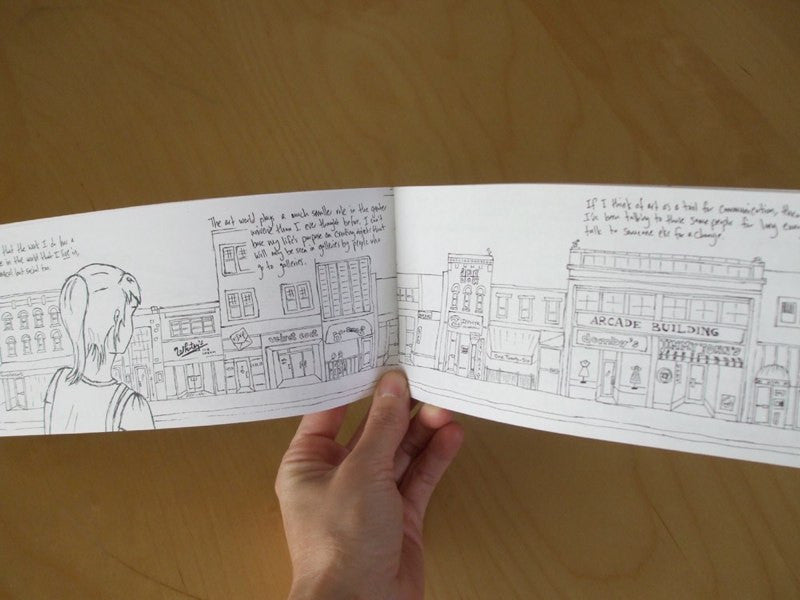 that the work I do has a
in the world that I live in,
but social too.
The art world plays a much smaller role in the greater
universe than I ever thought before. I can't
base my life's purpose on creating objects that
will only be seen in galleries by people who
go to galleries.
If I think of art as a tool for communication, then
I've been talking to those same people for long enou
talk to someone else for a change.
Whitey's
velvet coat
ARCADE BUILDING
dember's